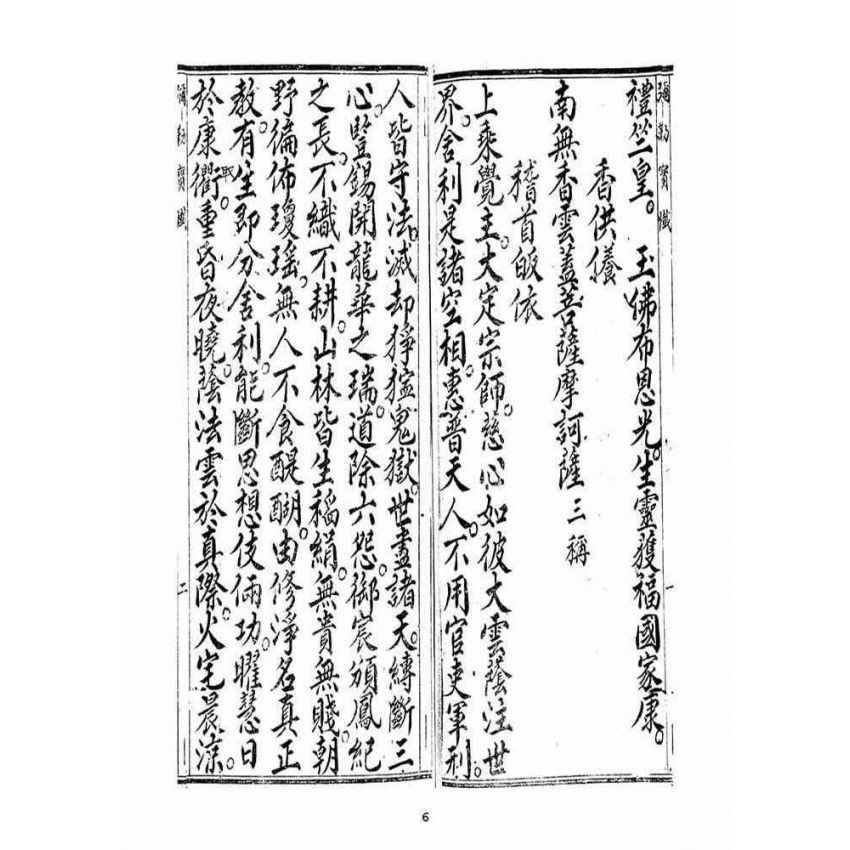 彌勒寶懺
禮竺皇。玉佛布恩光。生靈獲福國家康。
香供養
南無香雲蓋菩薩摩訶薩三稱
稽首皈依
上乘覺主。大定宗師。慈心如彼大雲蔭注世
界。舍利是諸空相。惠普天人。不用官吏軍利。
一
人皆守法。滅却猙猛鬼獄。世盡諸天。縛斷三
心。豎錫開龍華之瑞。道除六怨。御宸頒鳳紀
之長。不織不耕。山林皆生稻絹。無貴無賤。朝
野徧佈瓊瑤。無人不食醍醐。由修淨名真正
教。有生即分舍利。能斷思想伎倆功。曜慧日
於康衢。重昏夜曉。蔭法雲於真際。火宅晨涼。
彌勒寶懺
二
6